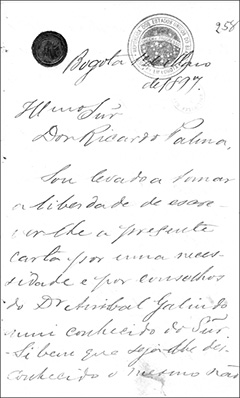 258
Bogotá 1º de Março
de 1897.
Illmo Sñr
Don Ricardo Palma,
Sou levado a tomar
a liberdade de escre-
ver lhe a presente
carta por uma neces-
sidade e por conselhos
do Dr Anibal Galindo
mui conhecido do Sñr.
Si bem que seja lhe des-
conhecido o mesmo não